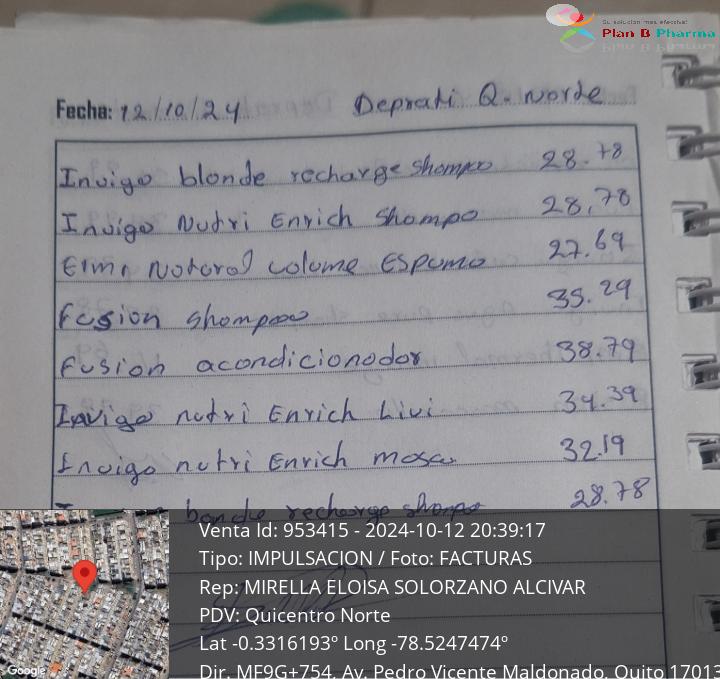 Su solucion mas efectiva!
Plan B Pharma
Fecha: 12/10/24 Deprati Q. Norte
Invigo blonde recharge shompo 28.78
Invigo Nutri Enrich Shompo 28,78
Eimi Notoral volume Espumo 27.69
Fusion shompoo 35.29
Fusion acondicionodor 38.79
Invigo nutri Enrich Livi 34.39
Invigo nutri Enrich masca 32.19
recharge shompo 28.78
Venta Id: 953415 - 2024-10-12 20:39:17
Tipo: IMPULSACION / Foto: FACTURAS
Rep: MIRELLA ELOISA SOLORZANO ALCIVAR
PDV: Quicentro Norte
Lat -0.3316193° Long -78.5247474°
Dir. MF9G+754, Av. Pedro Vicente Maldonado, Quito 17013
Google